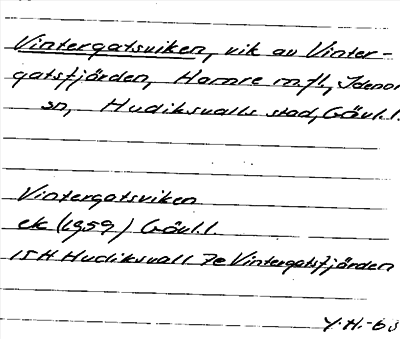 Vintergatsviken, vik av Vinter-
gatsfjärden, Hamre m.fl., Idenor
sn, Hudiksvalls stad, Gävl.l.
Vintergatsviken
ek (1959) Gävl.l.
15H Hudiksvall 7e Vintergatsfjärden
Y.H.-63